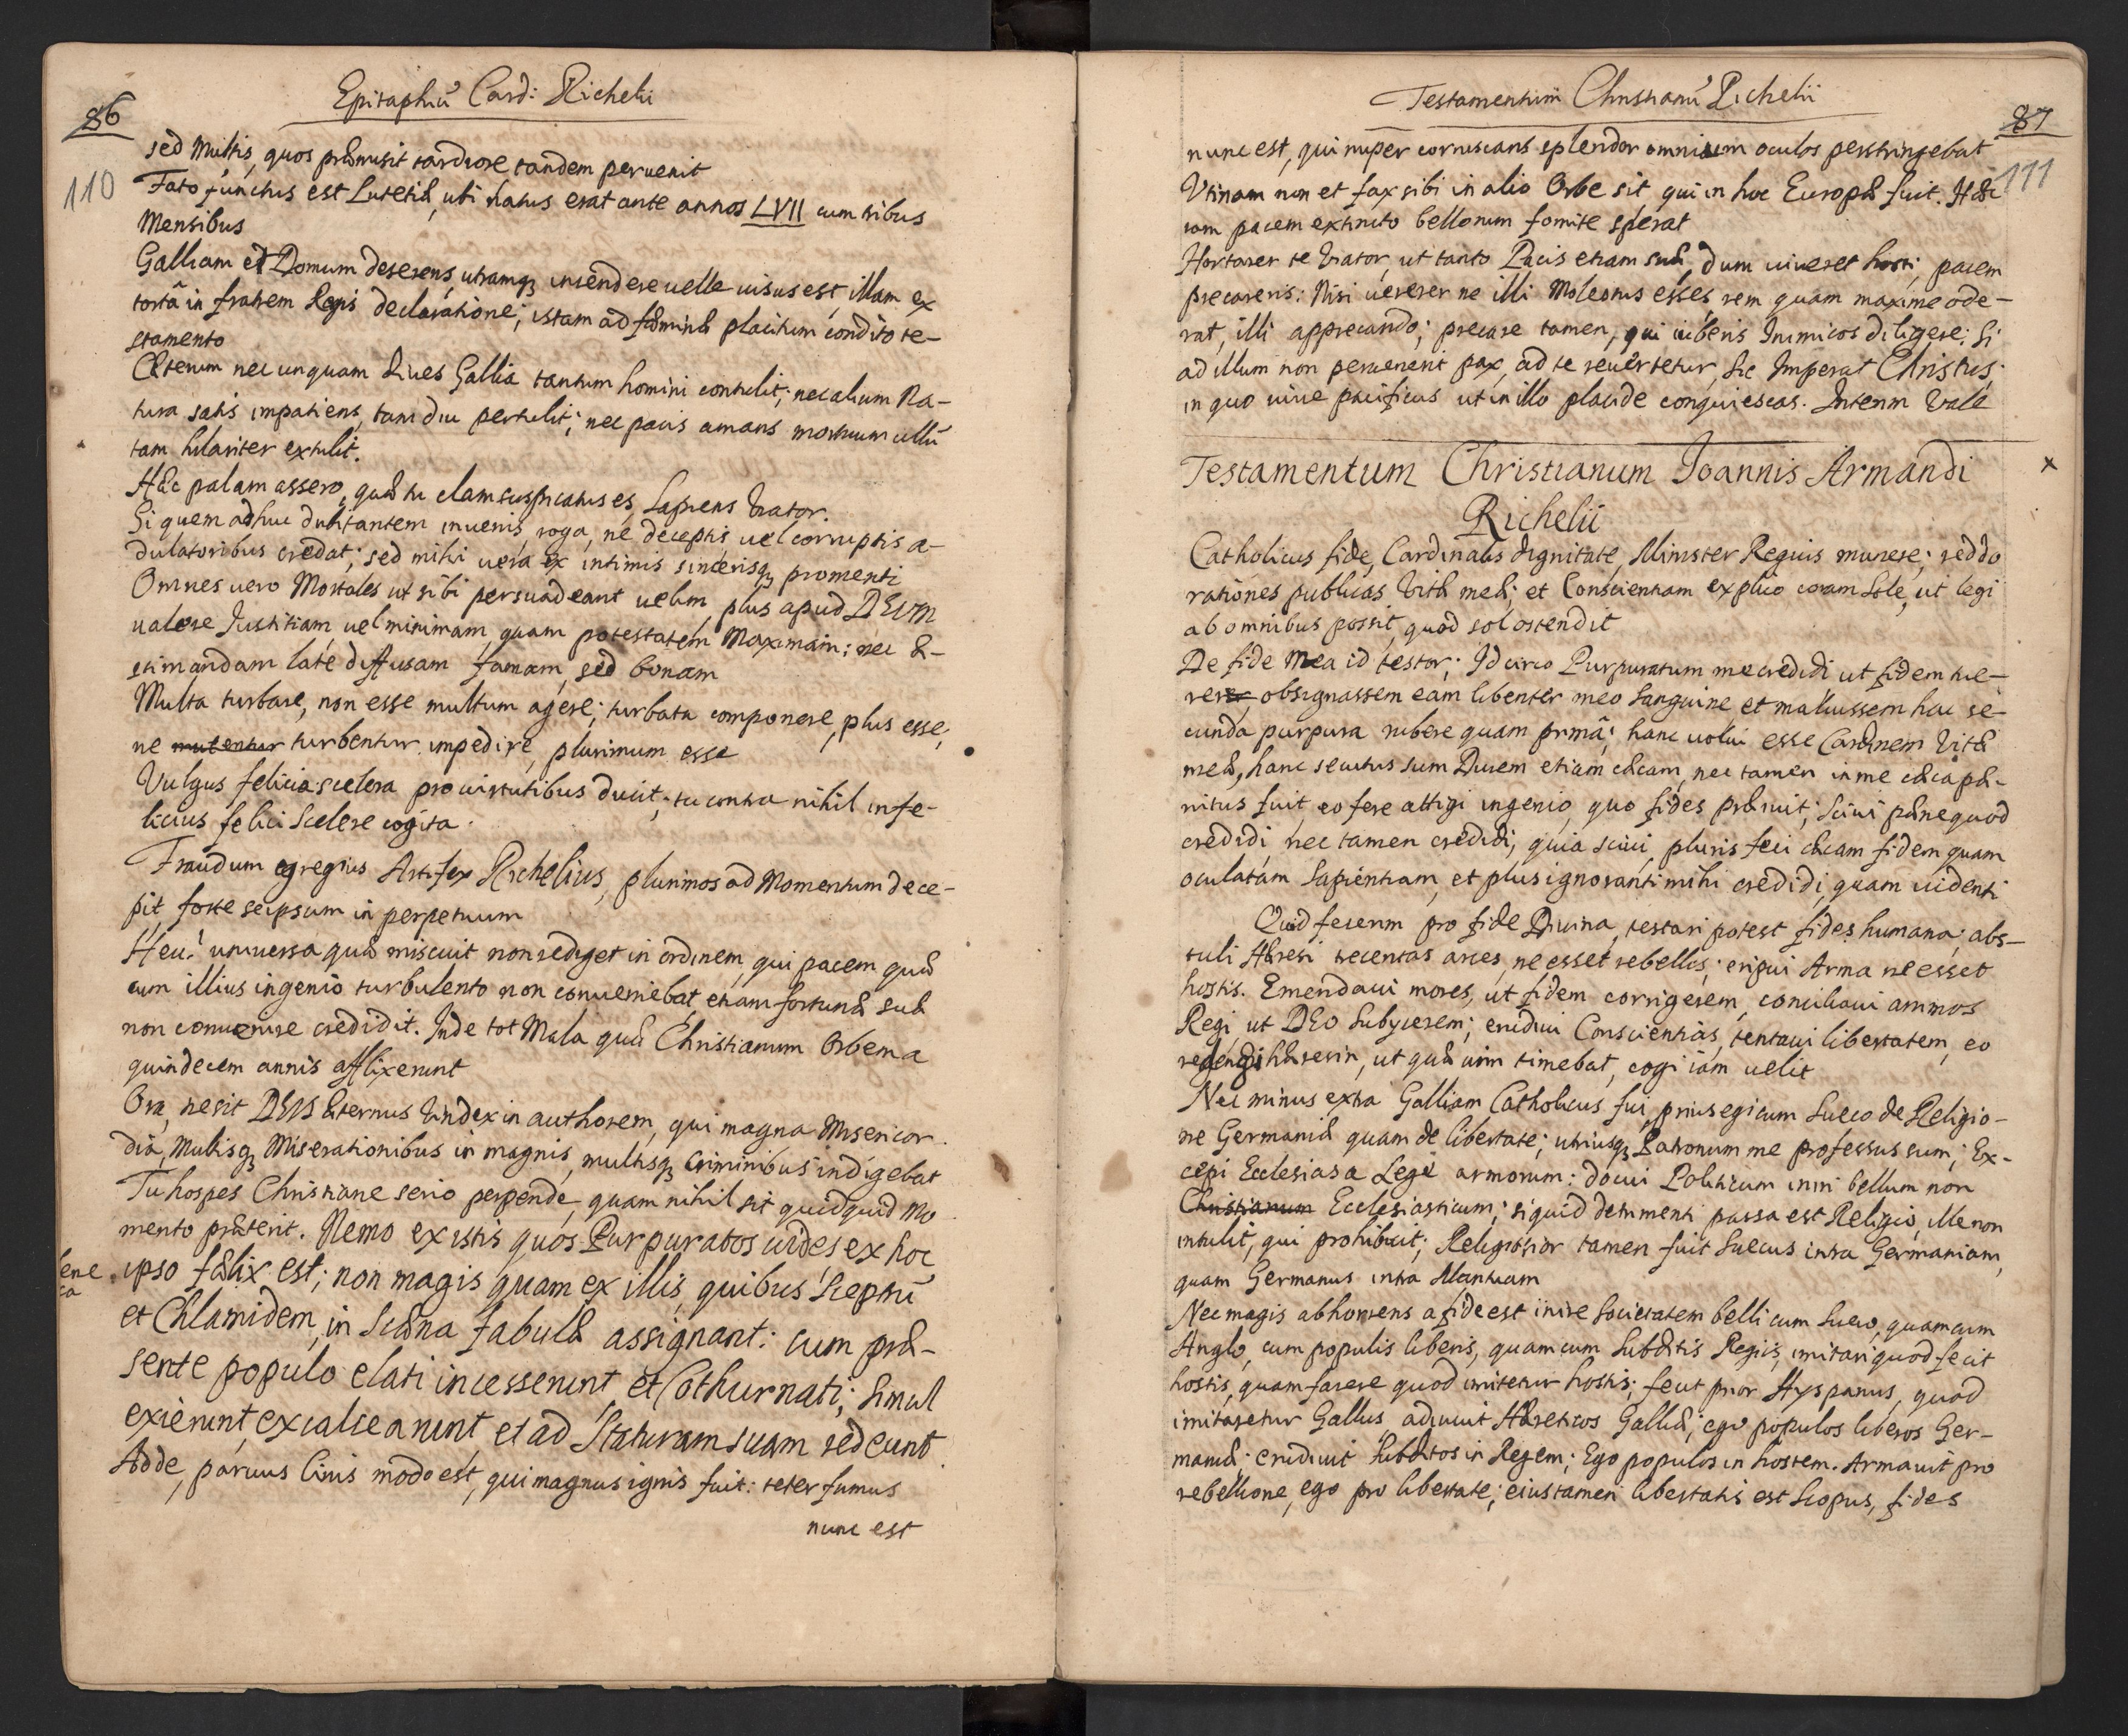 86
Epitaphiũ Card: Richelii
110
sed multis, quos præmisit tardiore tandem peruenit
Fato functus est Lutetiæ, ubi natus erat ante annos LVII cum tribus
Mensibus
Galliam et Domum deserens, utramq3 incendere uelle uisus est, illam ex
tortâ in fratrem Regis declaratione; istam ad fœminæ placitum condito te-
stamento
Cæterum nec unquam diues Gallia tantum homini contulit; nec alium Na-
tura satis impatiens, tam diu pertulit; nec pacis amans mortuum ullũ
tam hilariter extulit.
Hæc palam assero, quæ tu clam suspicatus es, Sapiens Viator.
Si quem adhuc dubitantem inuenis, roga, ne deceptis uel corruptis a-
dulatoribus credat; sed mihi uera ex intimis sincerisq3 promenti
Omnes uero Mortales ut sibi persuadeant uelim, plus apud DEVM
ualere Justitiam uel minimam, quam potestatem Maximam: nec æ-
stimandam late diffusam famam, sed bonam
Multa turbare, non esse multum agere; turbata componere, plus esse;
ne mutentur turbentur impedire, plurimum esse
Vulgus felicia scelera pro uirtutibus ducit; tu contra nihil infe-
licius felici Scelere cogita.
Fraudum egregius Artifex Richelius, plurimos ad Momentum dece-
pit, forte seipsum in perpetuum
Heu! uniuersa quæ miscuit non rediget in ordinem, qui pacem quæ
cum illius ingenio turbulento non conueniebat, etiam fortunæ suæ
non conuenire credidit. Inde tot Mala quæ Christianum Orbem a
quindecem annis afflixerunt
Ora, ne sit DEUS æternus Vindex in authorem, qui magna Misericor
dia, Multisq3 Miserationibus in magnis, multisq3 Criminibus indigebat
Tu hospes Christiane serio perpende, quam nihil sit quidquid Mo
mento præterit. Nemo ex istis quos Purpuratos uides, ex hoc
ene
ca
ipso fælix est; non magis quam ex illis, quibus Sceptrũ
et Chlamidem, in Scæna fabulæ assignant: cum præ-
sente populo elati incesserunt et Cothurnati; Simul
exierunt, excalcearunt, et ad Staturam suam redeunt.
Adde, paruus Cinis modo est, qui magnus ignis fuit: teter fumus
nunc est
Testamentum Christianũ Richelii
87
111
nunc est, qui nuper corruscans splendor omnium oculos perstringebat
Vtinam non et fax sibi in alio Orbe sit, qui in hoc Europæ fuit. Hæc
iam pacem extincto bellorum fomite sperat
Hortarer te Viator, ut tanto Pacis etiam suæ, dum uiueret hosti, pacem
precareris: Nisi uererer ne illi Molestus esses, rem quam maxime ode-
rat, illi apprecando; precare tamen, qui iuberis Inimicos diligere; Si
ad illum non peruenerit pax, ad te reuertetur, Sic Imperat Christus;
in quo uiue pacificus ut in illo placide conquiescas. Interim Vale
Testamentum Christianum Joannis Armandi
Richelii
Catholicus fide, Cardinalis dignitate, Minister Regius munere; reddo
rationes publicas Vitæ meæ; et Conscientiam explico coram Sole, ut legi
ab omnibus possit, quod sol ostendit
De fide Mea id testor; Idcirco Purpuratum me credidi ut fidem tue-
rer, obsignassem eam libenter meo Sanguine et maluissem hac se-
cunda purpura rubere quam primâ; hanc uolui esse Cardinem Vitæ
meæ, hanc secutus sum Ducem etiam cæcam, nec tamen in me cæca pæ-
nitus fuit, eo fere attigi ingenio, quo fides præiuit; Sciui pæne quod
credidi nec tamen credidi, quia sciui, pluris feci cæcam fidem quam
oculatam Sapientiam, et plus ignoranti mihi credidi, quam uidenti
Quid fecerim pro fide Diuina, testari potest fides humana; abs-
tuli Hæresi trecentas arces, ne esset rebellis; eripui Arma ne esset
hostis. Emendaui mores, ut fidem corrigerem, conciliaui animos
Regi, ut DEO Subijcerem; erudiui Conscientias, tentaui libertatem, eo
regendi hæresin, ut quæ uim timebat, cogi iam uelit
Nec minus extra Galliam Catholicus fui, prius egi cum Sueco de Religio-
ne Germaniæ quam de libertate; utriusq3 Patronum me professus sum; Ex-
cepi Ecclesias a Lege armorum: docui Politicum iniri bellum non
Christianum Ecclesiasticum; si quid detrimenti passa est Religio, ille non
intulit, qui prohibuit; Religiosior tamen fuit Suecus intra Germaniam,
quam Germanus intra Mantuam
Nec magis abhorrens a fide est inire Societatem belli cum Sueco, quam cum
Anglo, cum populis liberis, quam cum Subditis Regiis, imitari quod fecit
hostis, quam facere quod imitetur hostis; fecit prior Hyspanus, quod
imitaretur Gallus, adiuuit Hæreticos Galliæ; ego populos liberos Ger-
maniæ; erudiuit Subditos in Regem; Ego populos in hostem. Armauit pro
rebellione, ego pro libertate; eius tamen libertatis est Scopus, fides